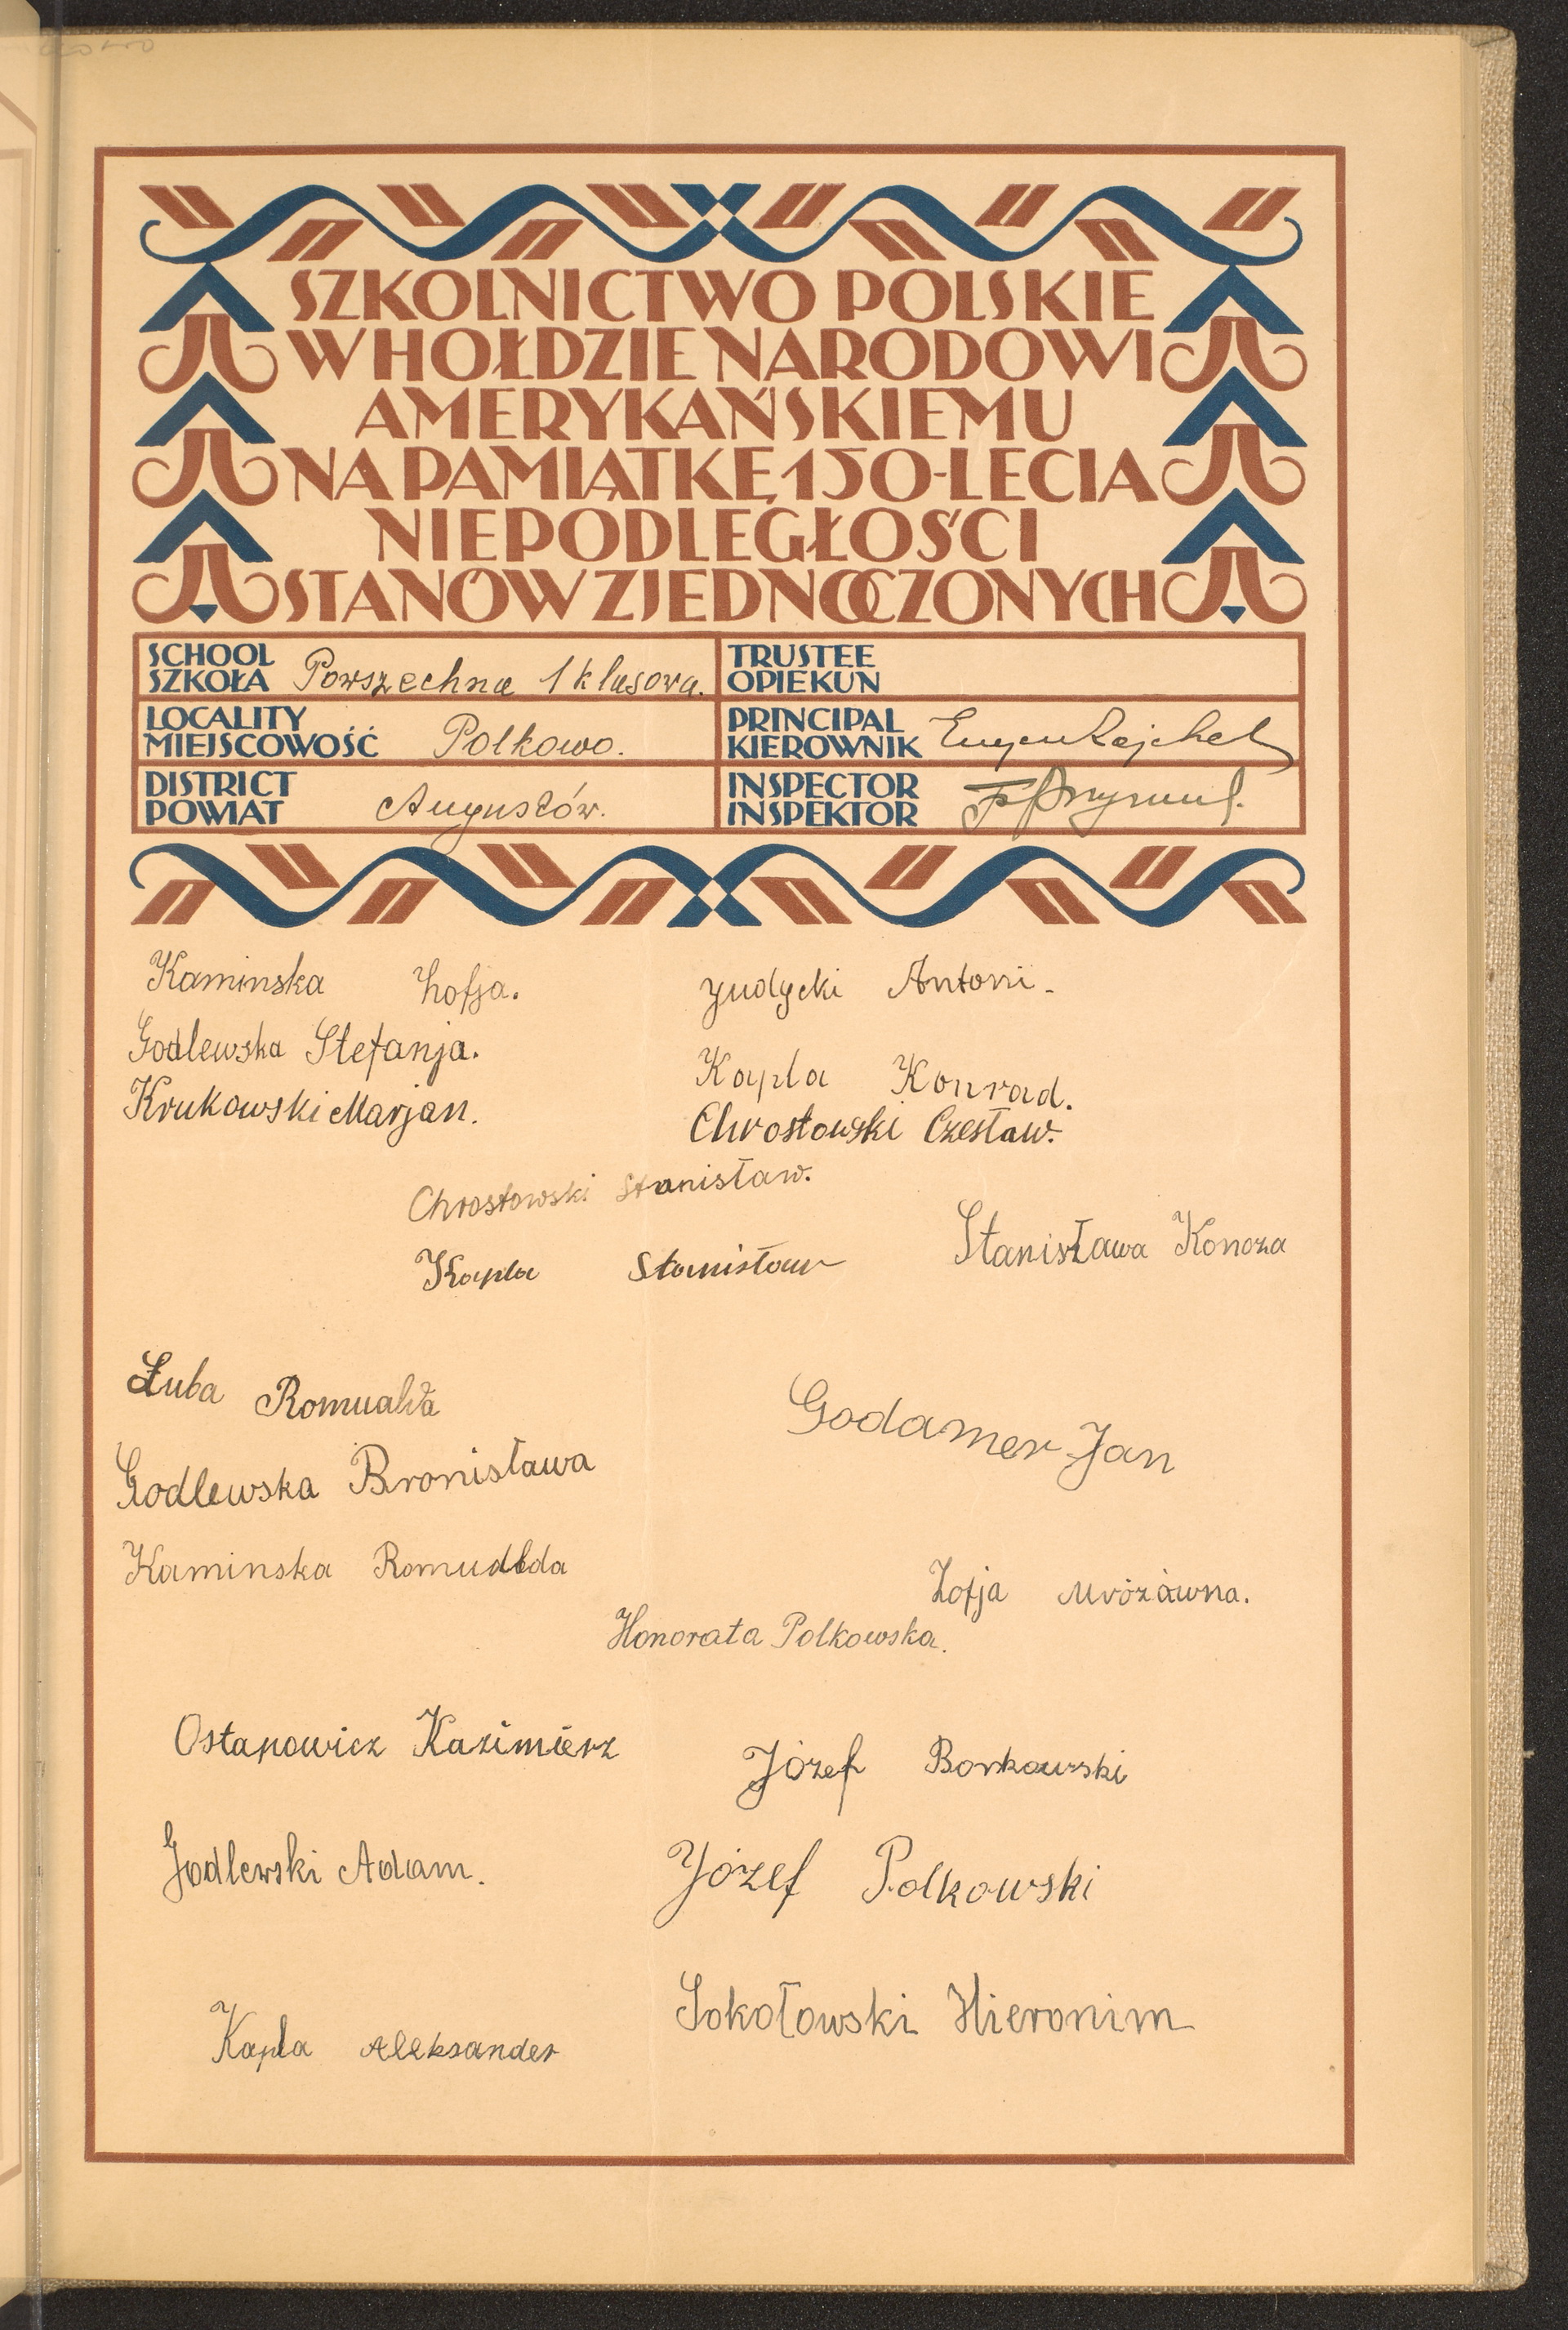 SZKOLNICTWO POLSKIE
W HOŁDZIE NARODOWI
AMERYKAŃSKIEMU
NA PAMIĄTKĘ 150-LECIA
NIEPODLEGŁOŚCI
STANÓW ZJEDNOCZONYCH
SCHOOL
SZKOŁA Powszechna 1 klasowa.
TRUSTEE
OPIEKUN
LOCALITY
MIEJSCOWOŚĆ Polkowo.
PRINCIPAL
KIEROWNIK Eugen
DISTRICT
POWIAT Augustów.
INSPECTOR
INSPEKTOR
Kaminska Zofja.
Judycki Antoni.
Godlewska Stefanja.
Kapla Konrad.
Krukowski Marjan.
Chrostowski Czesław.
Chrostowski Stanisław.
Kapla Stanisław
Stanisława Konoza
Łuba Romualda
Godamer Jan
Godlewska Bronisława
Kaminska Romualda
Zofja Mrozówna.
Honorata Polkowska.
Ostapowicz Kazimierz
Józef Borkowski
Godlewski Adam.
Józef Polkowski
Sokołowski Hieronim
Kapla Aleksander